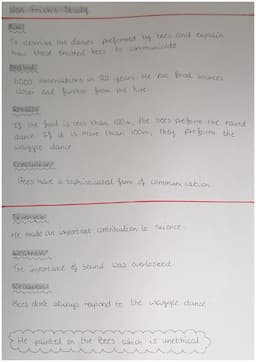 Von Frisch's Study
Aim
To describe the dances preformed by bees and explain
how these enabled bees to communicate.
Method
6000 observations in 20 years. He put food sources
closer and further from the hive.
Results
If the food is less than 100m, the bees preform the round
dance. If it is more than 100m, they preform the
waggle dance
Conclusion
Bees have a sophisticated form of communication.
Strength
He made an important contribution to science.
Weakness
The importance of sound was overlooked.
Weakness
Bees dont always respond to the waggle dance
He painted on the Bees which is unethical